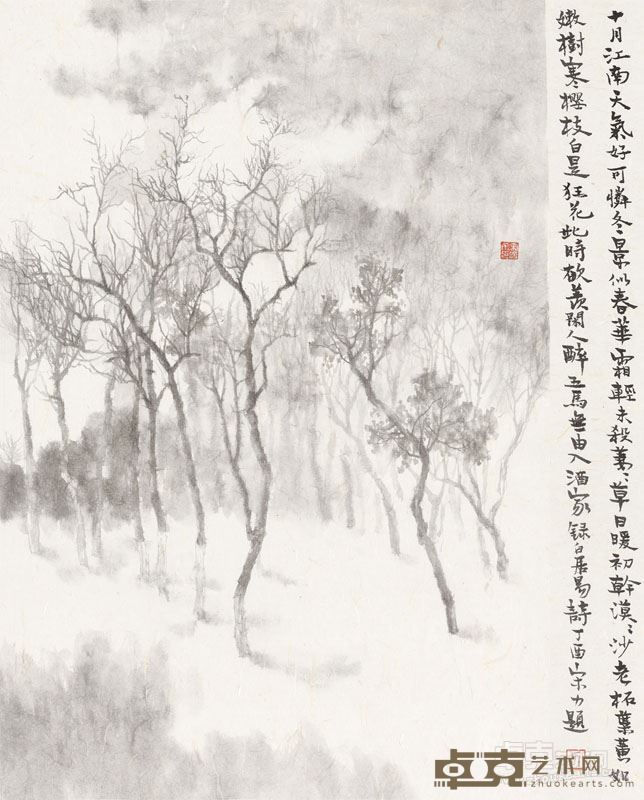 十月江南天氣好可憐冬景似春華霜輕未殺萋〻草日暖初幹漠〻沙老柘葉黃如
嫩樹寒櫻枝白是狂花此時欲羨閑人醉五馬無由入酒家録白居易詩丁酉宋力題
卓克艺术网
zhuokearts.com